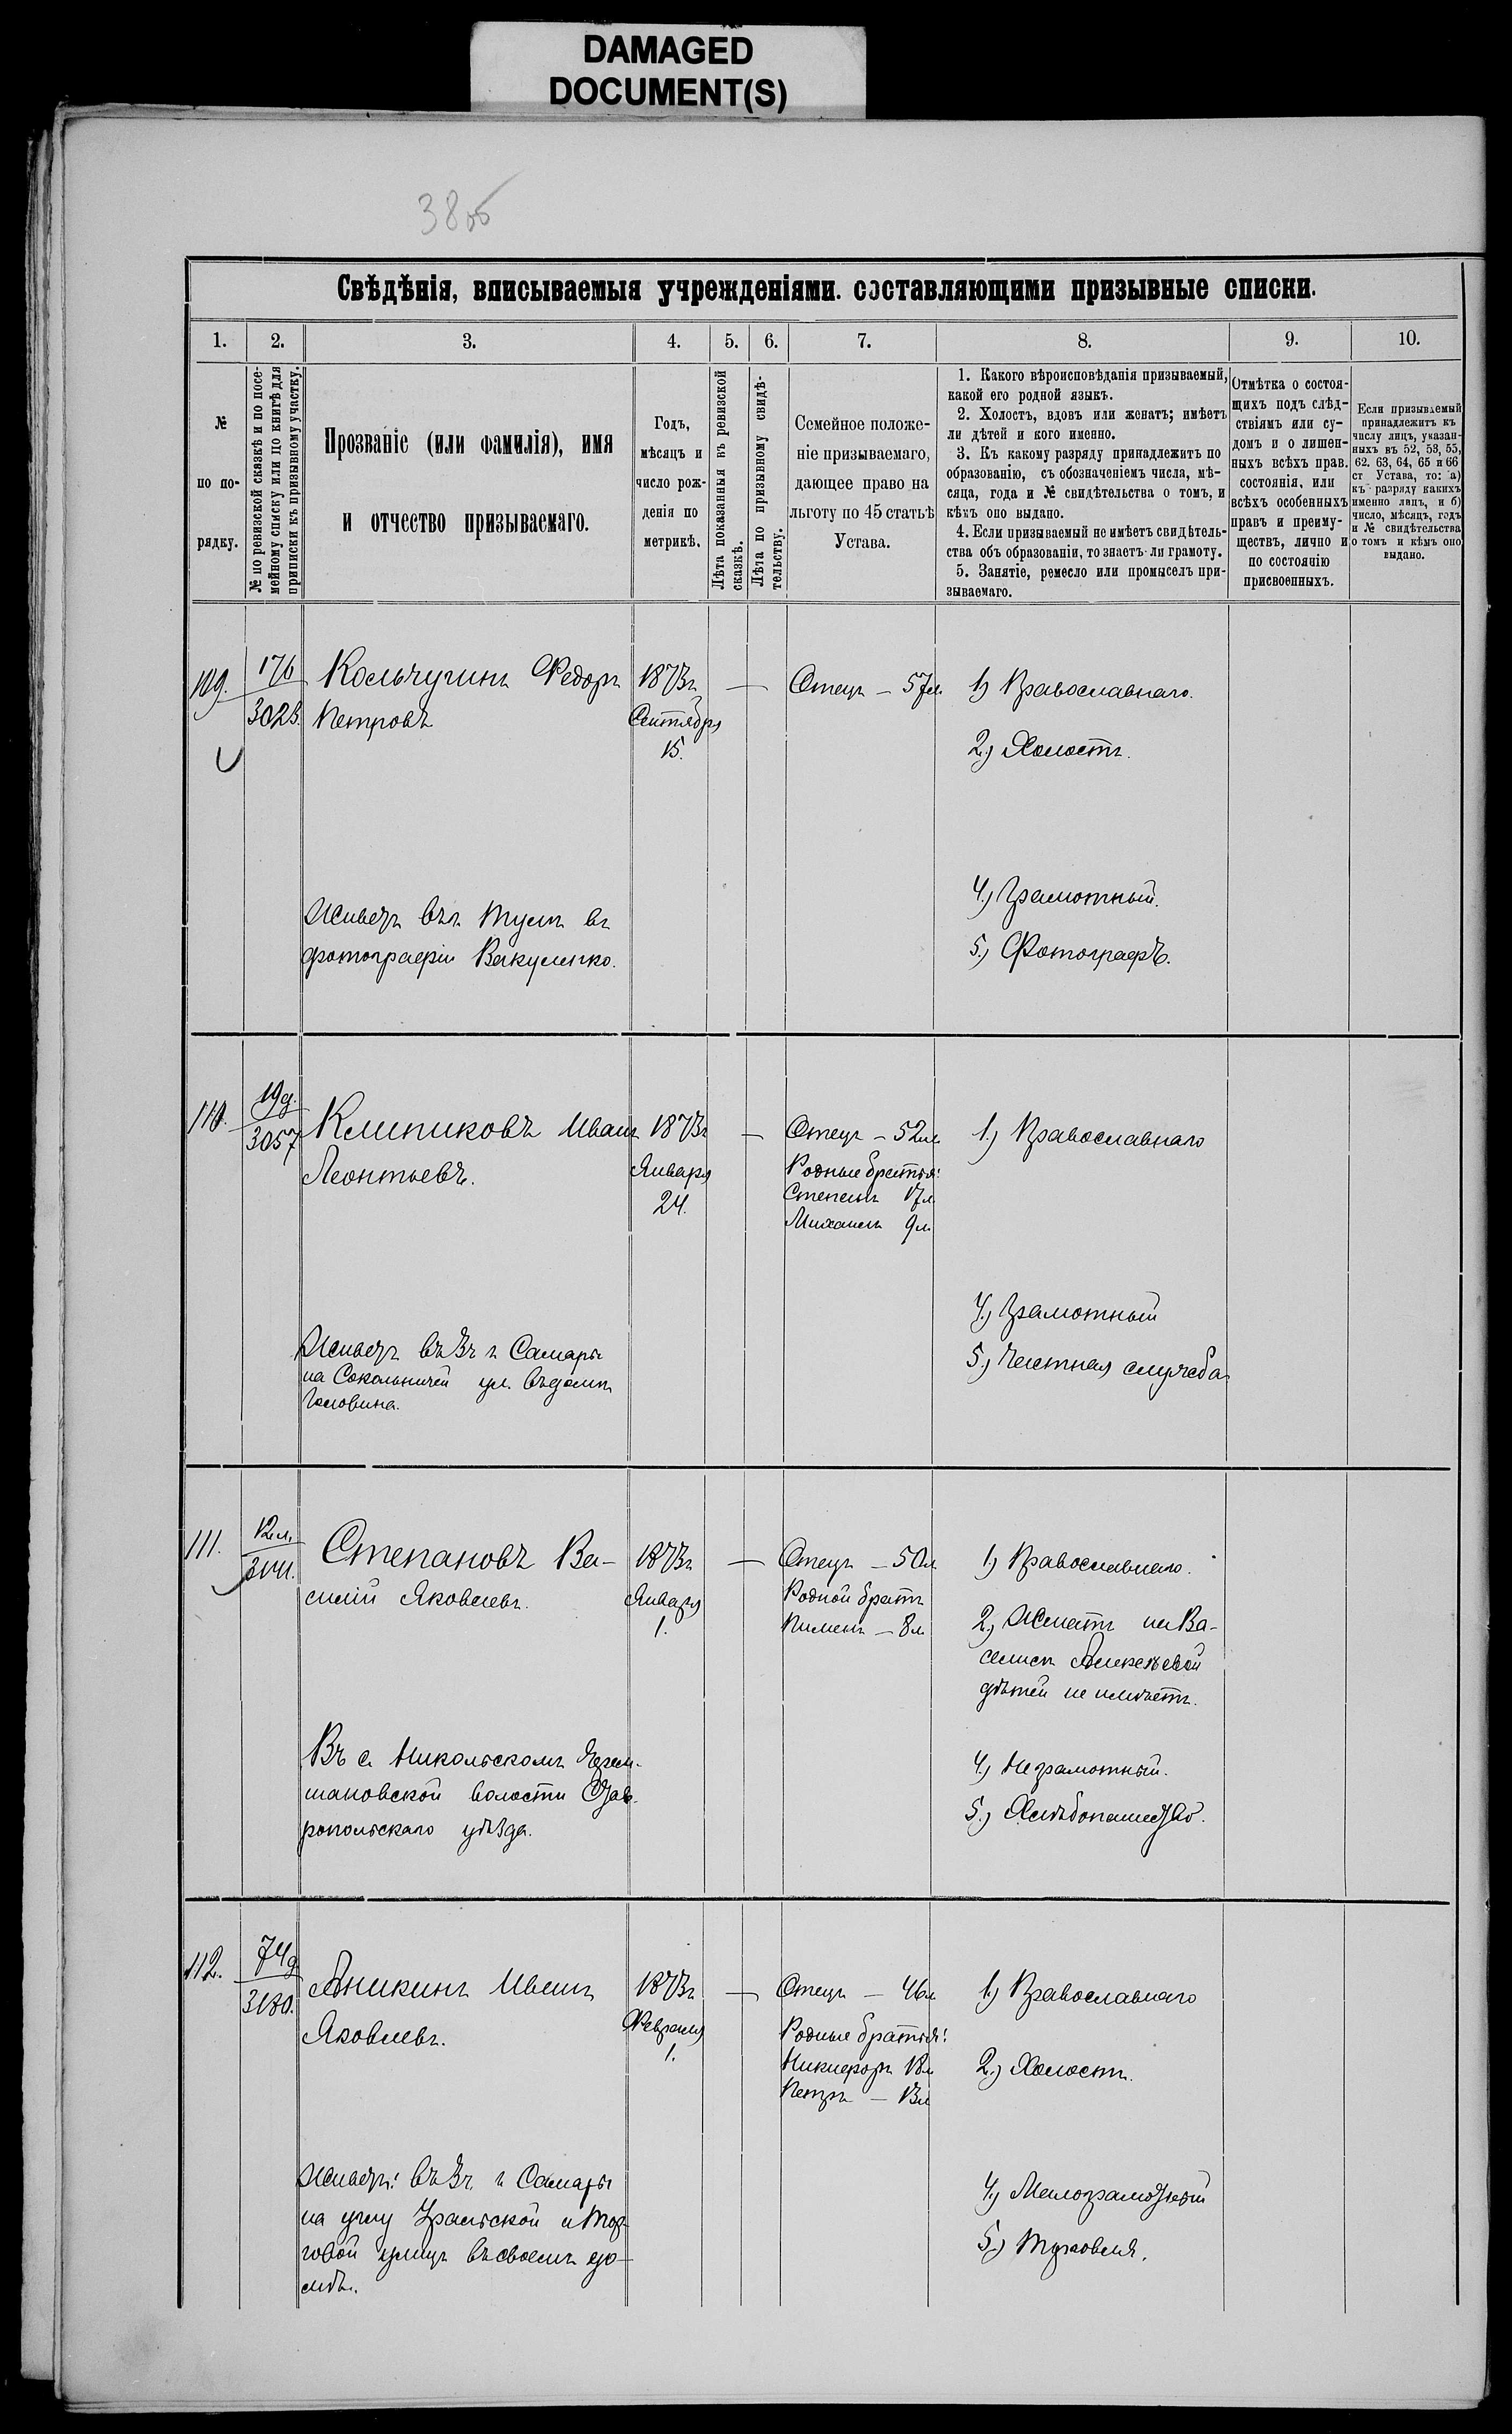 DAMAGED
DOCUMENT(S)
38об
Свѣдѣнія, вписываемыя учрежденіями. составляющими призывные списки.
1. 2. 3. 4. 5. 6. 7. 8. 9. 10.
№
по по-
рядку.
№ по ревизской сказкѣ и по посе-
мейному списку или по книгѣ для
приписки къ призывному участку.
Прозваніе (или фамилія), имя
и отчество призываемаго.
Годъ,
мѣсяцъ и
число рож-
денія по
метрикѣ.
Лѣта показанныя къ ревизской
сказкѣ.
Лѣта по призывному свидѣ-
тельству.
Семейное положе-
ніе призываемаго,
дающее право на
льготу по 45 статьѣ
Устава.
1. Какого вѣроисповѣданія призываемый,
какой его родной языкъ.
2. Холостъ, вдовъ или женатъ; имѣетъ
ли дѣтей и кого именно.
3. Къ какому разряду принадлежитъ по
образованію, съ обозначеніемъ числа, мѣ-
сяца, года и № свидѣтельства о томъ, и
кѣхъ оно выдано.
4. Если призываемый не имѣетъ свидѣтель-
ства объ образованіи, то знаетъ-ли грамоту.
5. Занятіе, ремесло или промыселъ при-
зываемаго.
Отмѣтка о состоя-
щихъ подъ слѣд-
ствіямъ или су-
домъ и о лишен-
ныхъ всѣхъ прав.
состоянія, или
всѣхъ особенныхъ
правъ и преиму-
ществъ, лично и
по состоянію
присвоенныхъ.
Если призываемый
принадлежитъ къ
числу лицъ, указан-
ныхъ въ 52, 53, 55,
62. 63, 64, 65 и 66
ст Устава, то: а)
къ разряду какихъ
именно лицъ, и б)
число, мѣсяцъ, годъ
и № свидѣтельства
о томъ и кѣмъ оно
выдано.
109.
176
3023.
Кольчугинъ Федоръ
Петровъ
1873г
Сентября
15.
—
Отецъ — 57л
1) Православнаго.
2.) Холостъ.
4.) Грамотный.
5.) Фотографъ.
Живетъ въ г. Туле въ
фотографіи Вакуленко.
110.
19д.
3057
Клипиковъ Иванъ
Леонтьевъ.
1873г
Января
24.
—
Отецъ — 52л
Родные братья:
Степанъ 17л
Михаилъ 9л
1.) Православнаго
4.) Грамотный
5.) Частная служба
Живетъ въ 3 ч г Самары
на Сокольничей ул. въ домѣ
Головина.
111.
12л.
Степановъ Ва-
силій Яковлевъ.
1873г
Января
1.
—
Отецъ — 50л
Родной братъ
Пименъ — 8л
1) Православнаго.
2.) Женатъ на Ва-
силисѣ Алексѣевой
дѣтей не имѣетъ.
4.) Неграмотный.
5.) Хлѣбопашество.
Въ с. Никольскомъ
волости Став-
ропольскаго уѣзда.
112.
74д
3180.
Аникинъ Иванъ
Яковлевъ.
1873г
Февраля
1.
—
Отецъ — 46л
Родные братья:
Никифоръ 18л
Петръ — 13л
1.) Православнаго
2.) Холостъ.
4.) Малограмотный
5.) Торговля.
Живетъ: въ 3 ч. г Самары
на углу Уральской и Тор-
говой улицъ въ своемъ до-
мѣ.